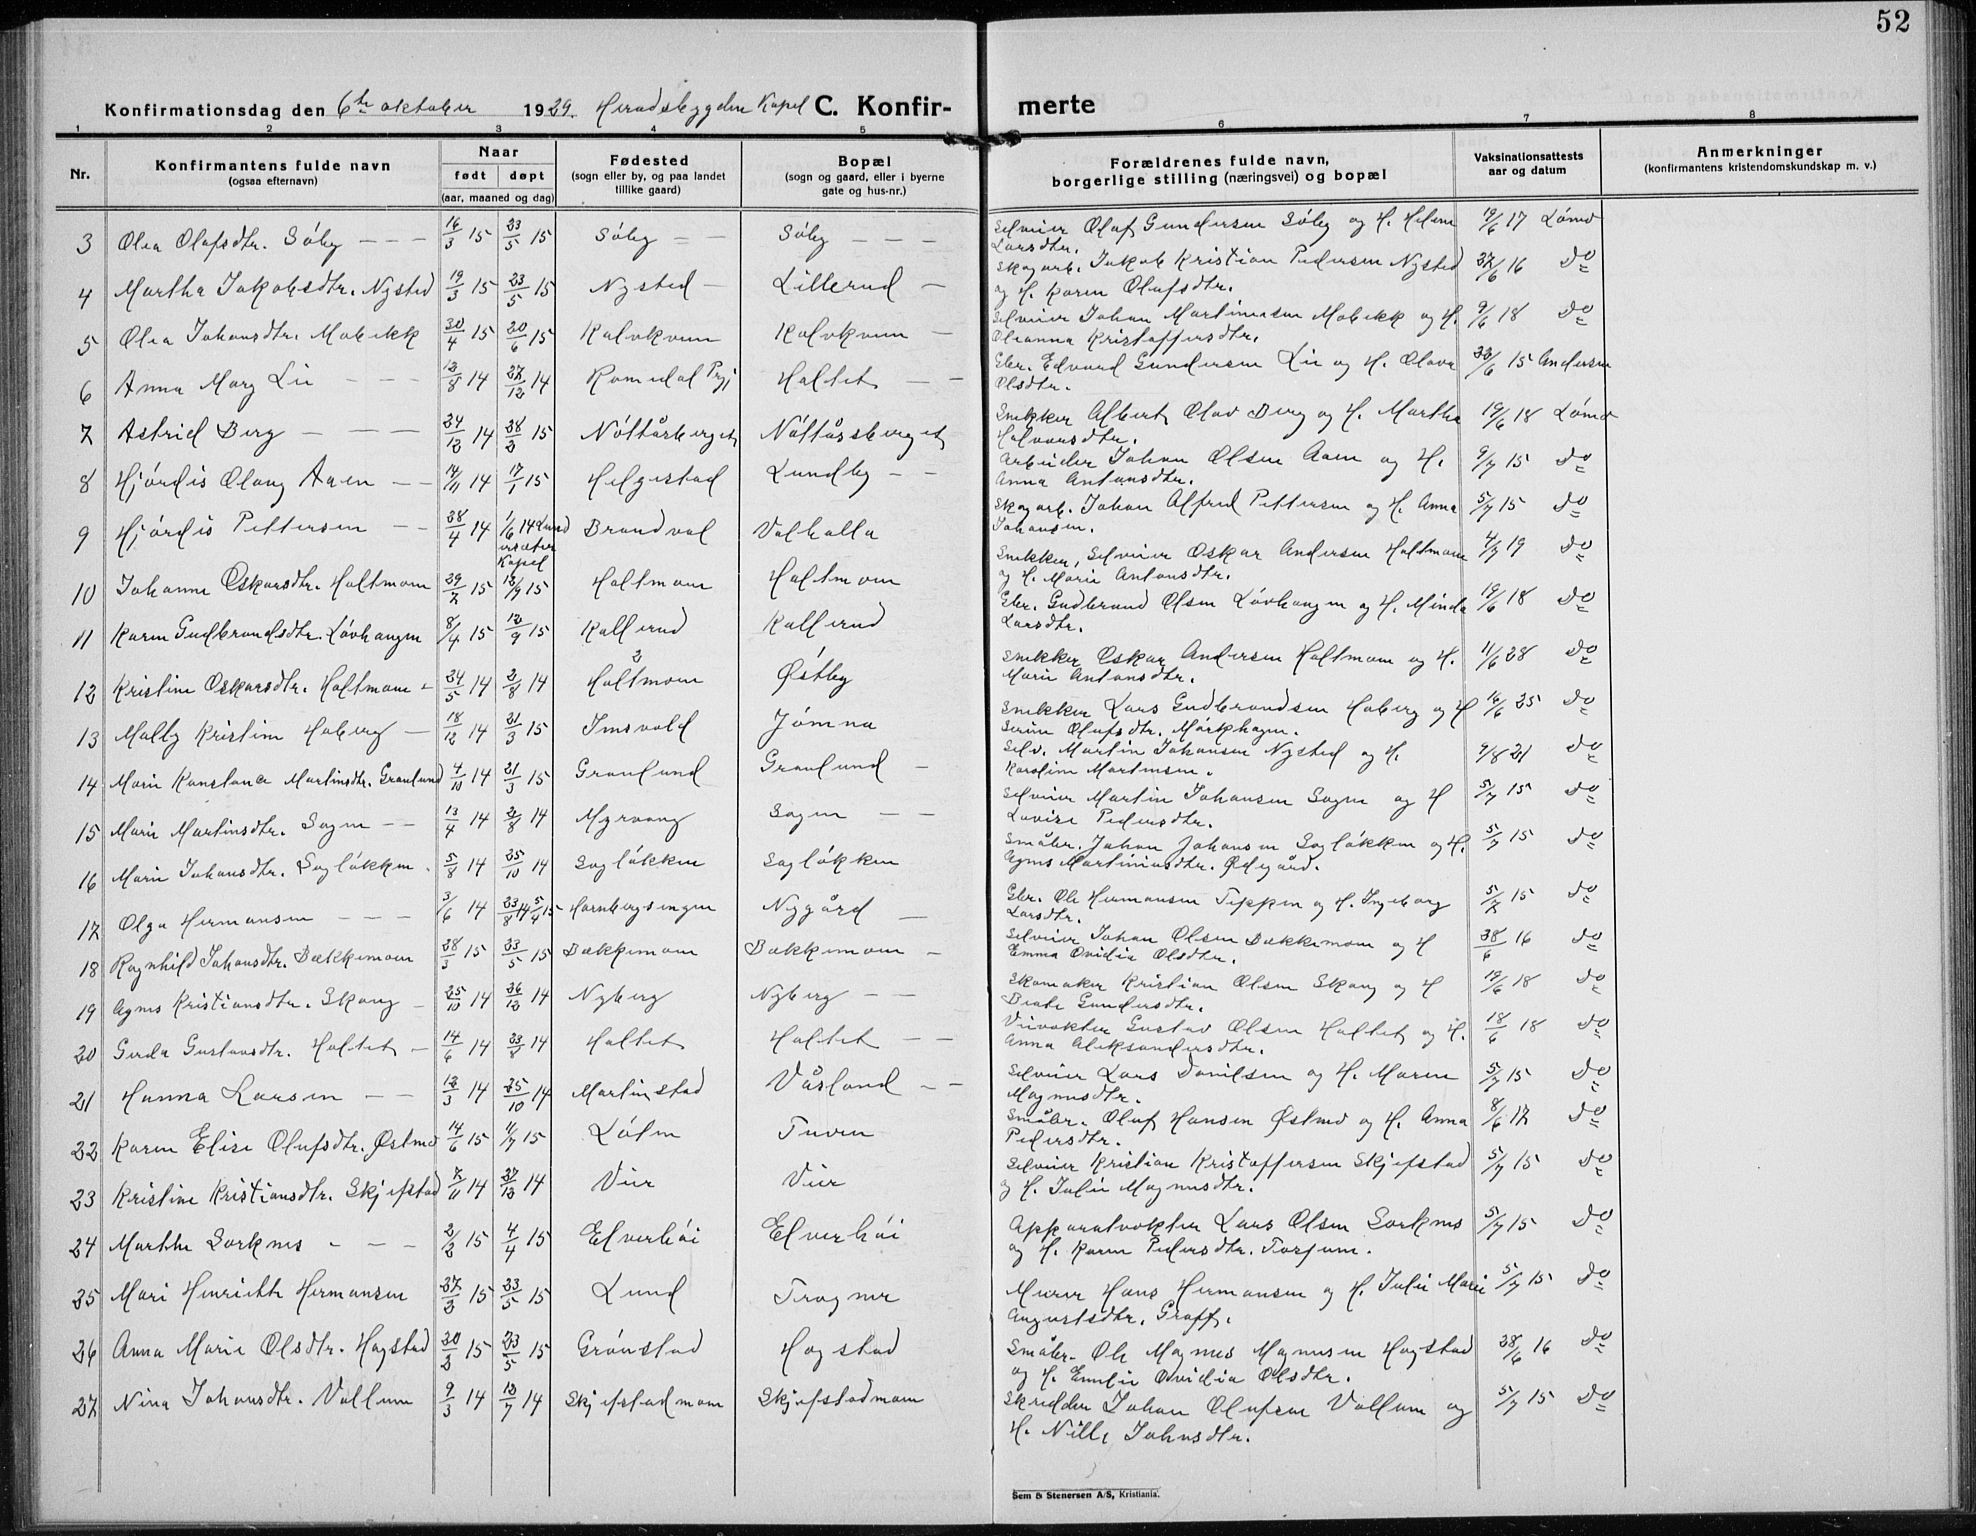 52
Konfirmationsdag den 6te oktober 1929. Heradsbygden Kapel C. Konfirmerte
1 2 3 4 5 6 7 8
Nr.
Konfirmantens fulde navn
(ogsaa efternavn)
Naar
født døpt
(aar, maaned og dag)
Fødested
(sogn eller by, og paa landet
tillike gaard)
Bopæl
(sogn og gaard, eller i byerne
gate og hus-nr.)
Forældrenes fulde navn,
borgerlige stilling (næringsvei) og bopæl
Vaksinationsattests
aar og datum
Anmerkninger
(konfirmantens kristendomskundskap m. v.)
3 Olea Olafsdtr. Søby — — — 16/3 15 23/5 15 Søby — — Søby — — — Selveier Olaf Gundersen Søby og H. Helene 19/6 17 Lømo
Larsdtr.
4 Martha Jakobsdtr. Nysted 19/3 15 23/5 15 Nysted — Lillerud — Skogarb. Jakob Kristian Pedersen Nysted 27/6 16 Do
og H. Karen Olufsdtr.
5 Olea Johansdtr. Mobekk 30/4 15 20/6 15 Kalvkven Kalvkven — Selveier Johan Martinusen Mobekk og H. 9/6 18 Do
Oleanna Kristoffersdtr.
6 Anna Mary Lie — — — 12/8 14 27/12 14 Romedal Prgj Haltet — — Gbr. Edvard Gundersen Lie og H. Olava 22/6 15 Andersen
Olsdtr.
7 Astrid Berg — — — 24/12 14 28/2 15 Nøttåsberget Nøttåsberget Snekker Albert Olav Berg og H. Martha 19/6 18 Lømo
Halvorsdtr.
8 Hjørdis Olaug Aaen — — 14/11 14 17/1 15 Helgestad Lundby — — Arbeider Johan Olsen Aaen og H. 9/7 15 Do
Anna Antonsdtr.
9 Hjørdis Pettersen — — 28/4 14 1/6 14 Lund Brandval Valhalla Skogarb. Johan Alfred Pettersen og H. Anna 5/7 15 Do
ersæter
Kapel
Johansen.
10 Johanne Oskarsdtr. Haltmoen 29/7 15 12/9 15 Haltmoen Haltmoen Snekker, Selveier Oskar Andersen Haltmoen 4/7 19 Do
og H. Marie Antonsdtr.
11 Karen Gudbrandsdtr. Løvhaugen 8/4 15 12/9 15 Kallerud Kallerud Gbr. Gudbrand Olsen Løvhaugen og H. Minda 19/6 18 Do
Larsdtr.
12 Kristine Oskarsdtr. Haltmoen - 24/5 14 2/8 14 Haltmoen Østby Snekker Oskar Andersen Haltmoen og H. 11/6 28 Do
Marie Antonsdtr.
13 Mally Kristine Hoberg — 18/12 14 21/3 15 Imsvold Jømna Snekker Lars Gudbrandsen Hoberg og H 16/6 25 Do
Serine Olufsdtr. Mørkhagen.
14 Marie Konstance Martinsdtr. Graulund 4/10 14 21/3 15 Graulund Graulund — Selv. Martin Johansen Nysted og H. 9/8 21 Do
Karoline Martinsen.
15 Marie Martinsdtr. Sagen — — 13/4 14 2/8 14 Myrvang Sagen — — Selveier Martin Johansen Sagen og H 5/7 15 Do
Lovise Pedersdtr.
16 Marie Johansdtr. Sagløkken. 5/8 14 25/10 14 Sagløkken Sagløkken Småbr. Johan Johansen Sagløkken og H. 5/7 15 Do
Agnes Martiniusdtr. Ødegård.
17 Olga Hermansen — — — 3/6 14 23/8 14 5/4 15 Hornbergsengen Nygård — Gbr. Ole Hermansen Teppen og H. Ingeborg 5/7 15 Do
Larsdtr.
18 Ragnhild Johansdtr. Bækkemoen 28/3 15 23/5 15 Bækkemoen Bækkemoen — Selveier Johan Olsen Bækkemoen og H 28/6 16 Do
Emma Ovidia Olsdtr.
19 Agnes Kristiansdtr. Skaug — 25/10 14 26/12 14 Nyberg Nyberg — — Skomaker Kristian Olsen Skaug og H 19/6 18 Do
Beate Gundersdtr.
20 Gerda Gustavsdtr. Haltet — 14/6 14 23/8 14 Haltet Haltet — — Veivokter Gustav Olsen Haltet og H. 18/6 18 Do
Anna Aleksandersdtr.
21 Hanna Larsen — — 12/3 14 25/10 14 Martinstad Våsland — — Selveier Lars Danilsen og H. Maren 5/7 15 Do
Magnusdtr.
22 Karen Elise Olufsdtr. Østmo 14/6 15 11/7 15 Løten Tuven Småbr. Oluf Hansen Østmo og H. Anna 8/6 17 Do
Pedersdtr.
23 Kristine Kristiansdtr. Skjefstad 7/11 14 27/12 14 Vier Vier Selveier Kristian Kristoffersen Skjefstad 5/7 15 Do
og H. Julie Magnusdtr.
24 Marthe Sorknes - — — 2/2 15 4/4 15 Elverhøi Elverhøi Apparatvokter Lars Olsen Sorknes 5/7 15 Do
og H. Karen Pedersdtr. Torjum.
25 Mari Henriette Hermansen 27/3 15 23/5 15 Lund Trogner Murer Hans Hermansen og H. Julie Marie 5/7 15 Do
Augustsdtr. Graff.
26 Anna Marie Olsdtr. Hagstad 30/3 15 23/5 15 Grønstad Hagstad Småbr. Ole Magnus Magnusen Hagstad 28/6 16 Do
og H. Emilie Ovidia Olsdtr.
27 Nina Johansdtr. Vollum 9/3 14 12/7 14 Skjefstadmoen Skjefstadmoen Skredder Johan Olufsen Vollum og 5/7 15 Do
H. Nille Johnsdtr.
Sem & Stenersen A/S, Kristiania.